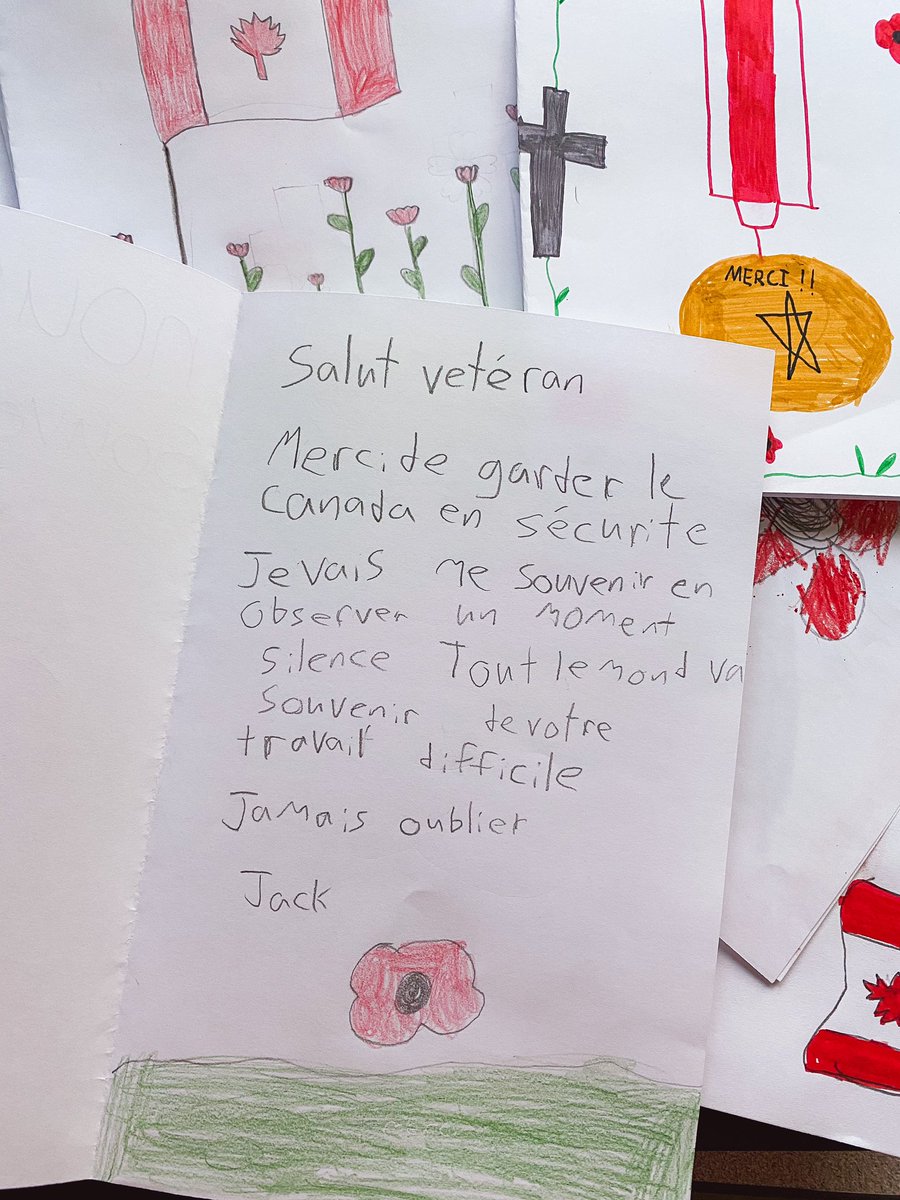 MERCI !!
Salut vetéran
Merci de garder le
Canada en sécurite
Je vais me souvenir en
observer un moment
silence Tout le mond va
souvenir de votre
travail difficile
Jamais oublier
Jack